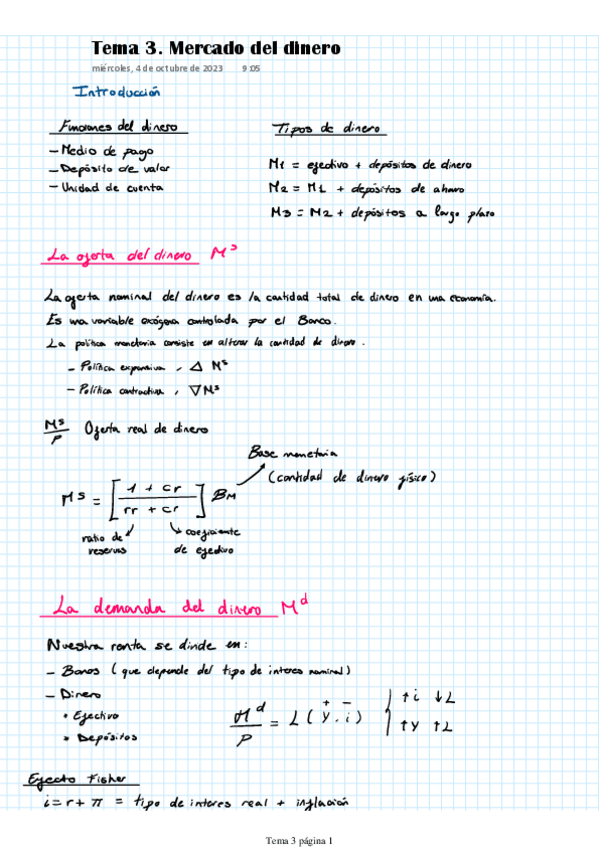 Tema 3. Mercado del dinero
miércoles, 4 de octubre de 2023 9:05
Introducción
Funciones del dinero
- Medio de pago
- Depósito de valor
- Unidad de cuenta
Tipos de dinero
M1 = efectivo + depósitos de dinero
M2 = M1 + depósitos de ahorro
M3 = M2 + depósitos a largo plazo
La oferta del dinero M^s
La oferta nominal del dinero es la cantidad total de dinero en una economía.
Es una variable exógena controlada por el Banco.
La política monetaria consiste en alterar la cantidad de dinero.
- Política expansiva, Δ M^s
- Política contractiva, ∇ M^s
M^s/P Oferta real de dinero
Base monetaria
(cantidad de dinero físico)
M^s = [ (1 + cr) / (rr + cr) ] BM
ratio de reservas
coeficiente de efectivo
La demanda del dinero M^d
Nuestra renta se divide en:
- Bonos (que depende del tipo de interes nominal)
- Dinero
• Efectivo
• Depósitos
M^d/P = L(Y^+, i^-) { ↑i ↓L
↑Y ↑L
Efecto Fisher
i = r + π = tipo de interes real + inflación
Tema 3 página 1